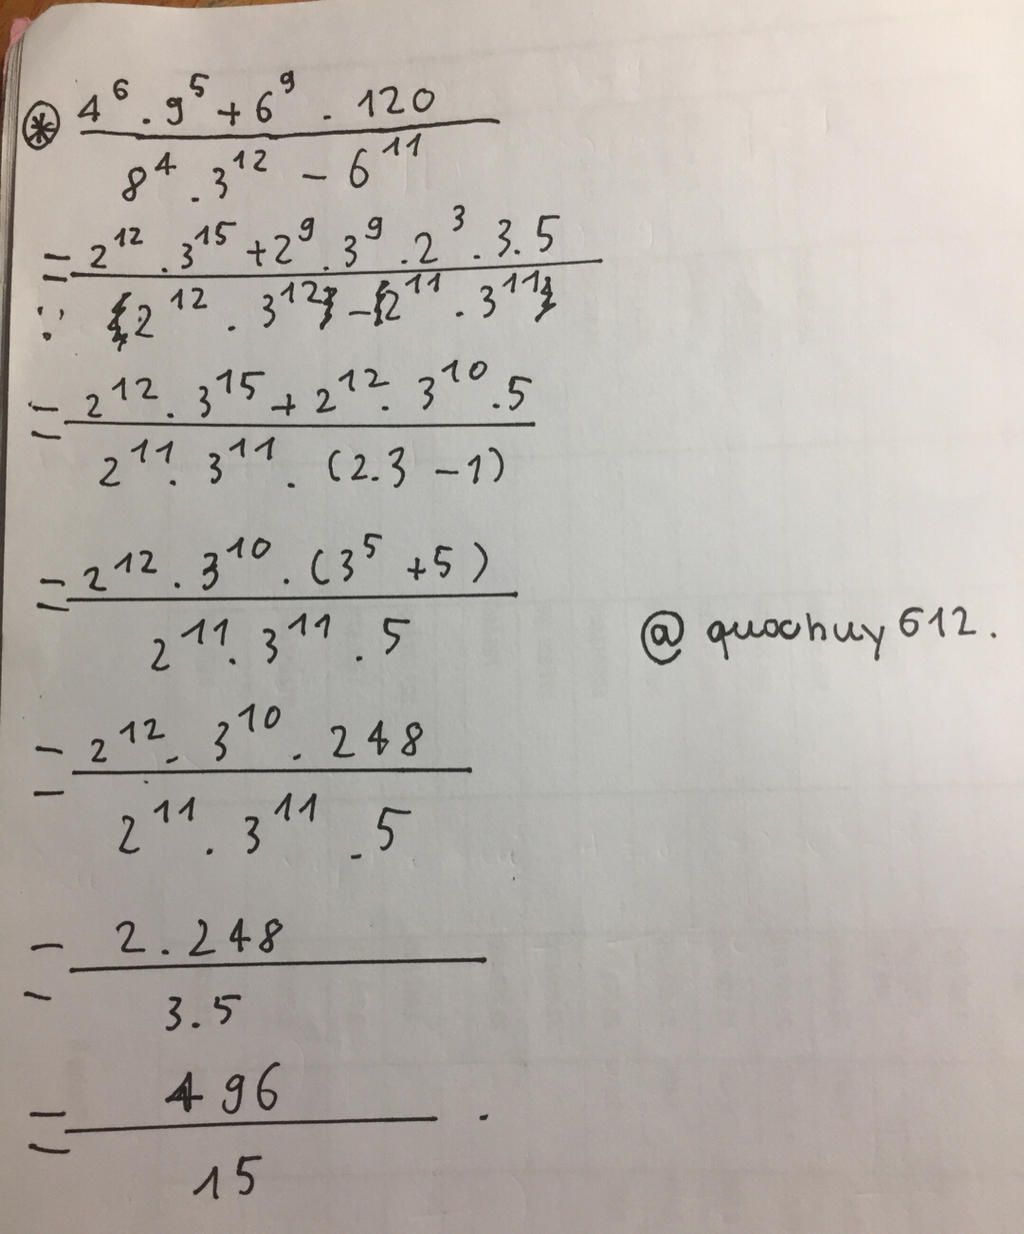 ⊛ 4^6 . 9^5 + 6^9 . 120
8^4 . 3^12 - 6^11
= 2^12 . 3^15 + 2^9 . 3^9 . 2^3 . 3 . 5
{2^12 . 3^12} - {2^11 . 3^11}
= 2^12 . 3^15 + 2^12 . 3^10 . 5
2^11 . 3^11 . (2.3 - 1)
= 2^12 . 3^10 . (3^5 + 5)
2^11 . 3^11 . 5
@ quochuy612.
= 2^12 . 3^10 . 248
2^11 . 3^11 . 5
= 2 . 248
3 . 5
= 496 .
15